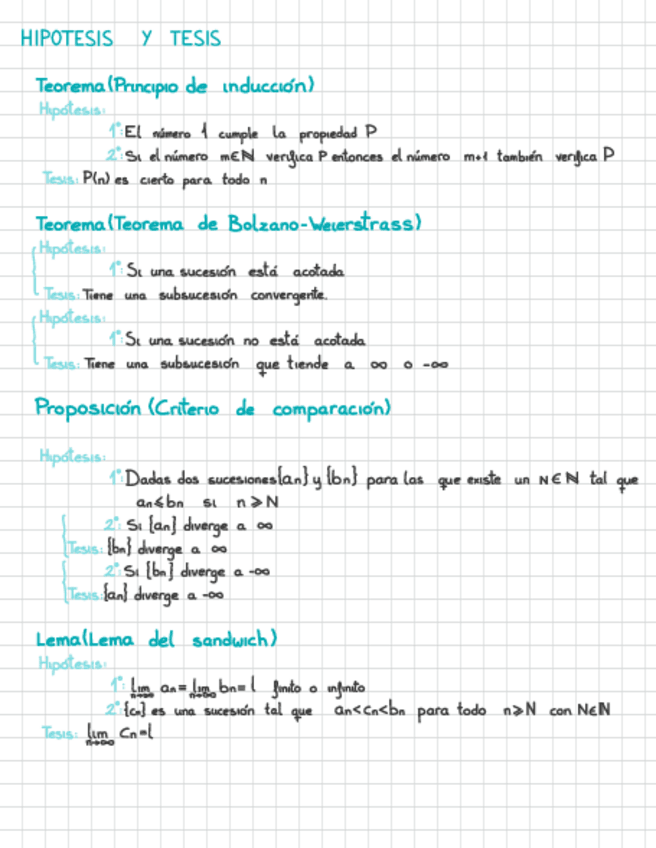 HIPOTESIS Y TESIS
Teorema(Principio de inducción)
Hipótesis:
1º: El número 1 cumple la propiedad P
2º: Si el número m∈N verifica P entonces el número m+1 también verifica P
Tesis: P(n) es cierto para todo n
Teorema(Teorema de Bolzano-Weierstrass)
Hipótesis:
1º: Si una sucesión está acotada
Tesis: Tiene una subsucesión convergente.
Hipótesis:
1º: Si una sucesión no está acotada
Tesis: Tiene una subsucesión que tiende a ∞ o -∞
Proposición (Criterio de comparación)
Hipótesis:
1º: Dadas dos sucesiones {an} y {bn} para las que existe un N∈N tal que
an≤bn si n≥N
2º: Si {an} diverge a ∞
Tesis: {bn} diverge a ∞
2º: Si {bn} diverge a -∞
Tesis: {an} diverge a -∞
Lema(Lema del sandwich)
Hipótesis:
1º: lim n→∞ an = lim n→∞ bn = l finito o infinito
2º: {cn} es una sucesión tal que an<cn<bn para todo n≥N con N∈N
Tesis: lim n→∞ Cn=l